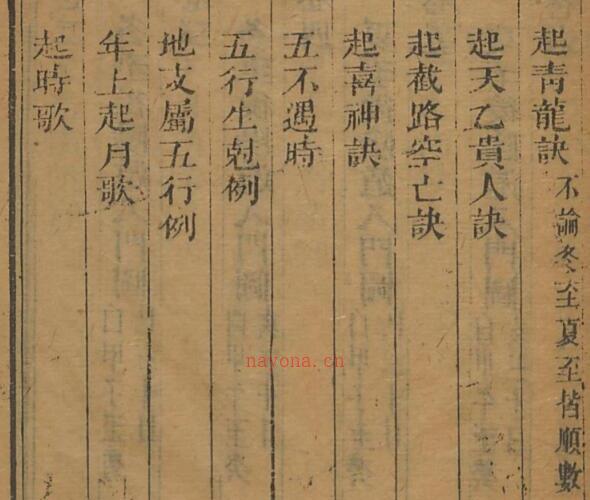 起青龍訣不論冬至夏至皆順數
起天乙貴人訣
起截路空亡訣
起喜神訣
五不遇時
五行生尅例
地支屬五行例
年上起月歌
起時歌
nayona.cn